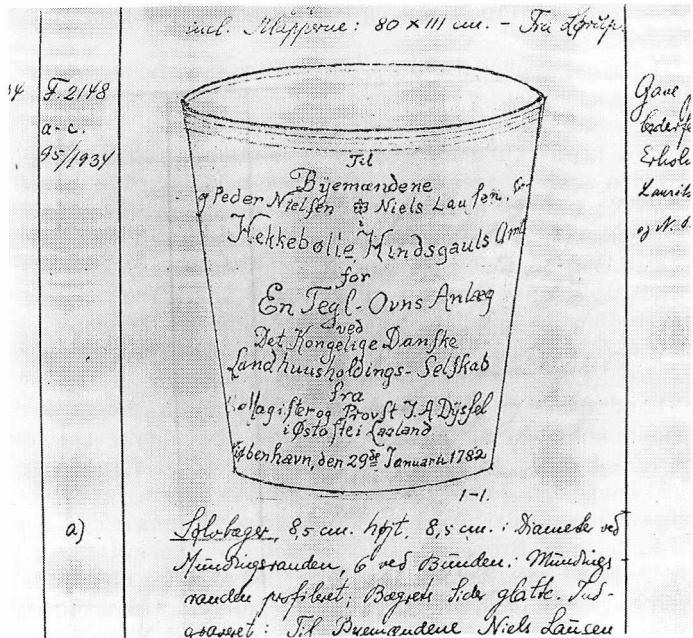 incl. Klapperne: 80 x 111 cm. - Fra Lørup.
F. 2148
a-c.
95/1934
Gave
Laurits
og N.
Til
Bÿemændene
Peder Nielsen Niels Laufen,
i
Hekkebølle Hindsgauls Amt
for
En Tegl-Ovns Anlæg
ved
Det Kongelige Danfke
Landhuusholdings-Selfkab
fra
og Provft I.A Dÿsfel
i Øftofte i Laaland
Kiøbenhavn, den 29de Januarii 1782
1-1.
a)
Sølvbæger, 8,5 cm. højt, 8,5 cm. i Diameter ved
Mündingsranden, 6 ved Bünden. Mündings-
randen profileret; Bægrets Sider glatte. Ind-
graveret: Til Byemændene Niels Laüsen